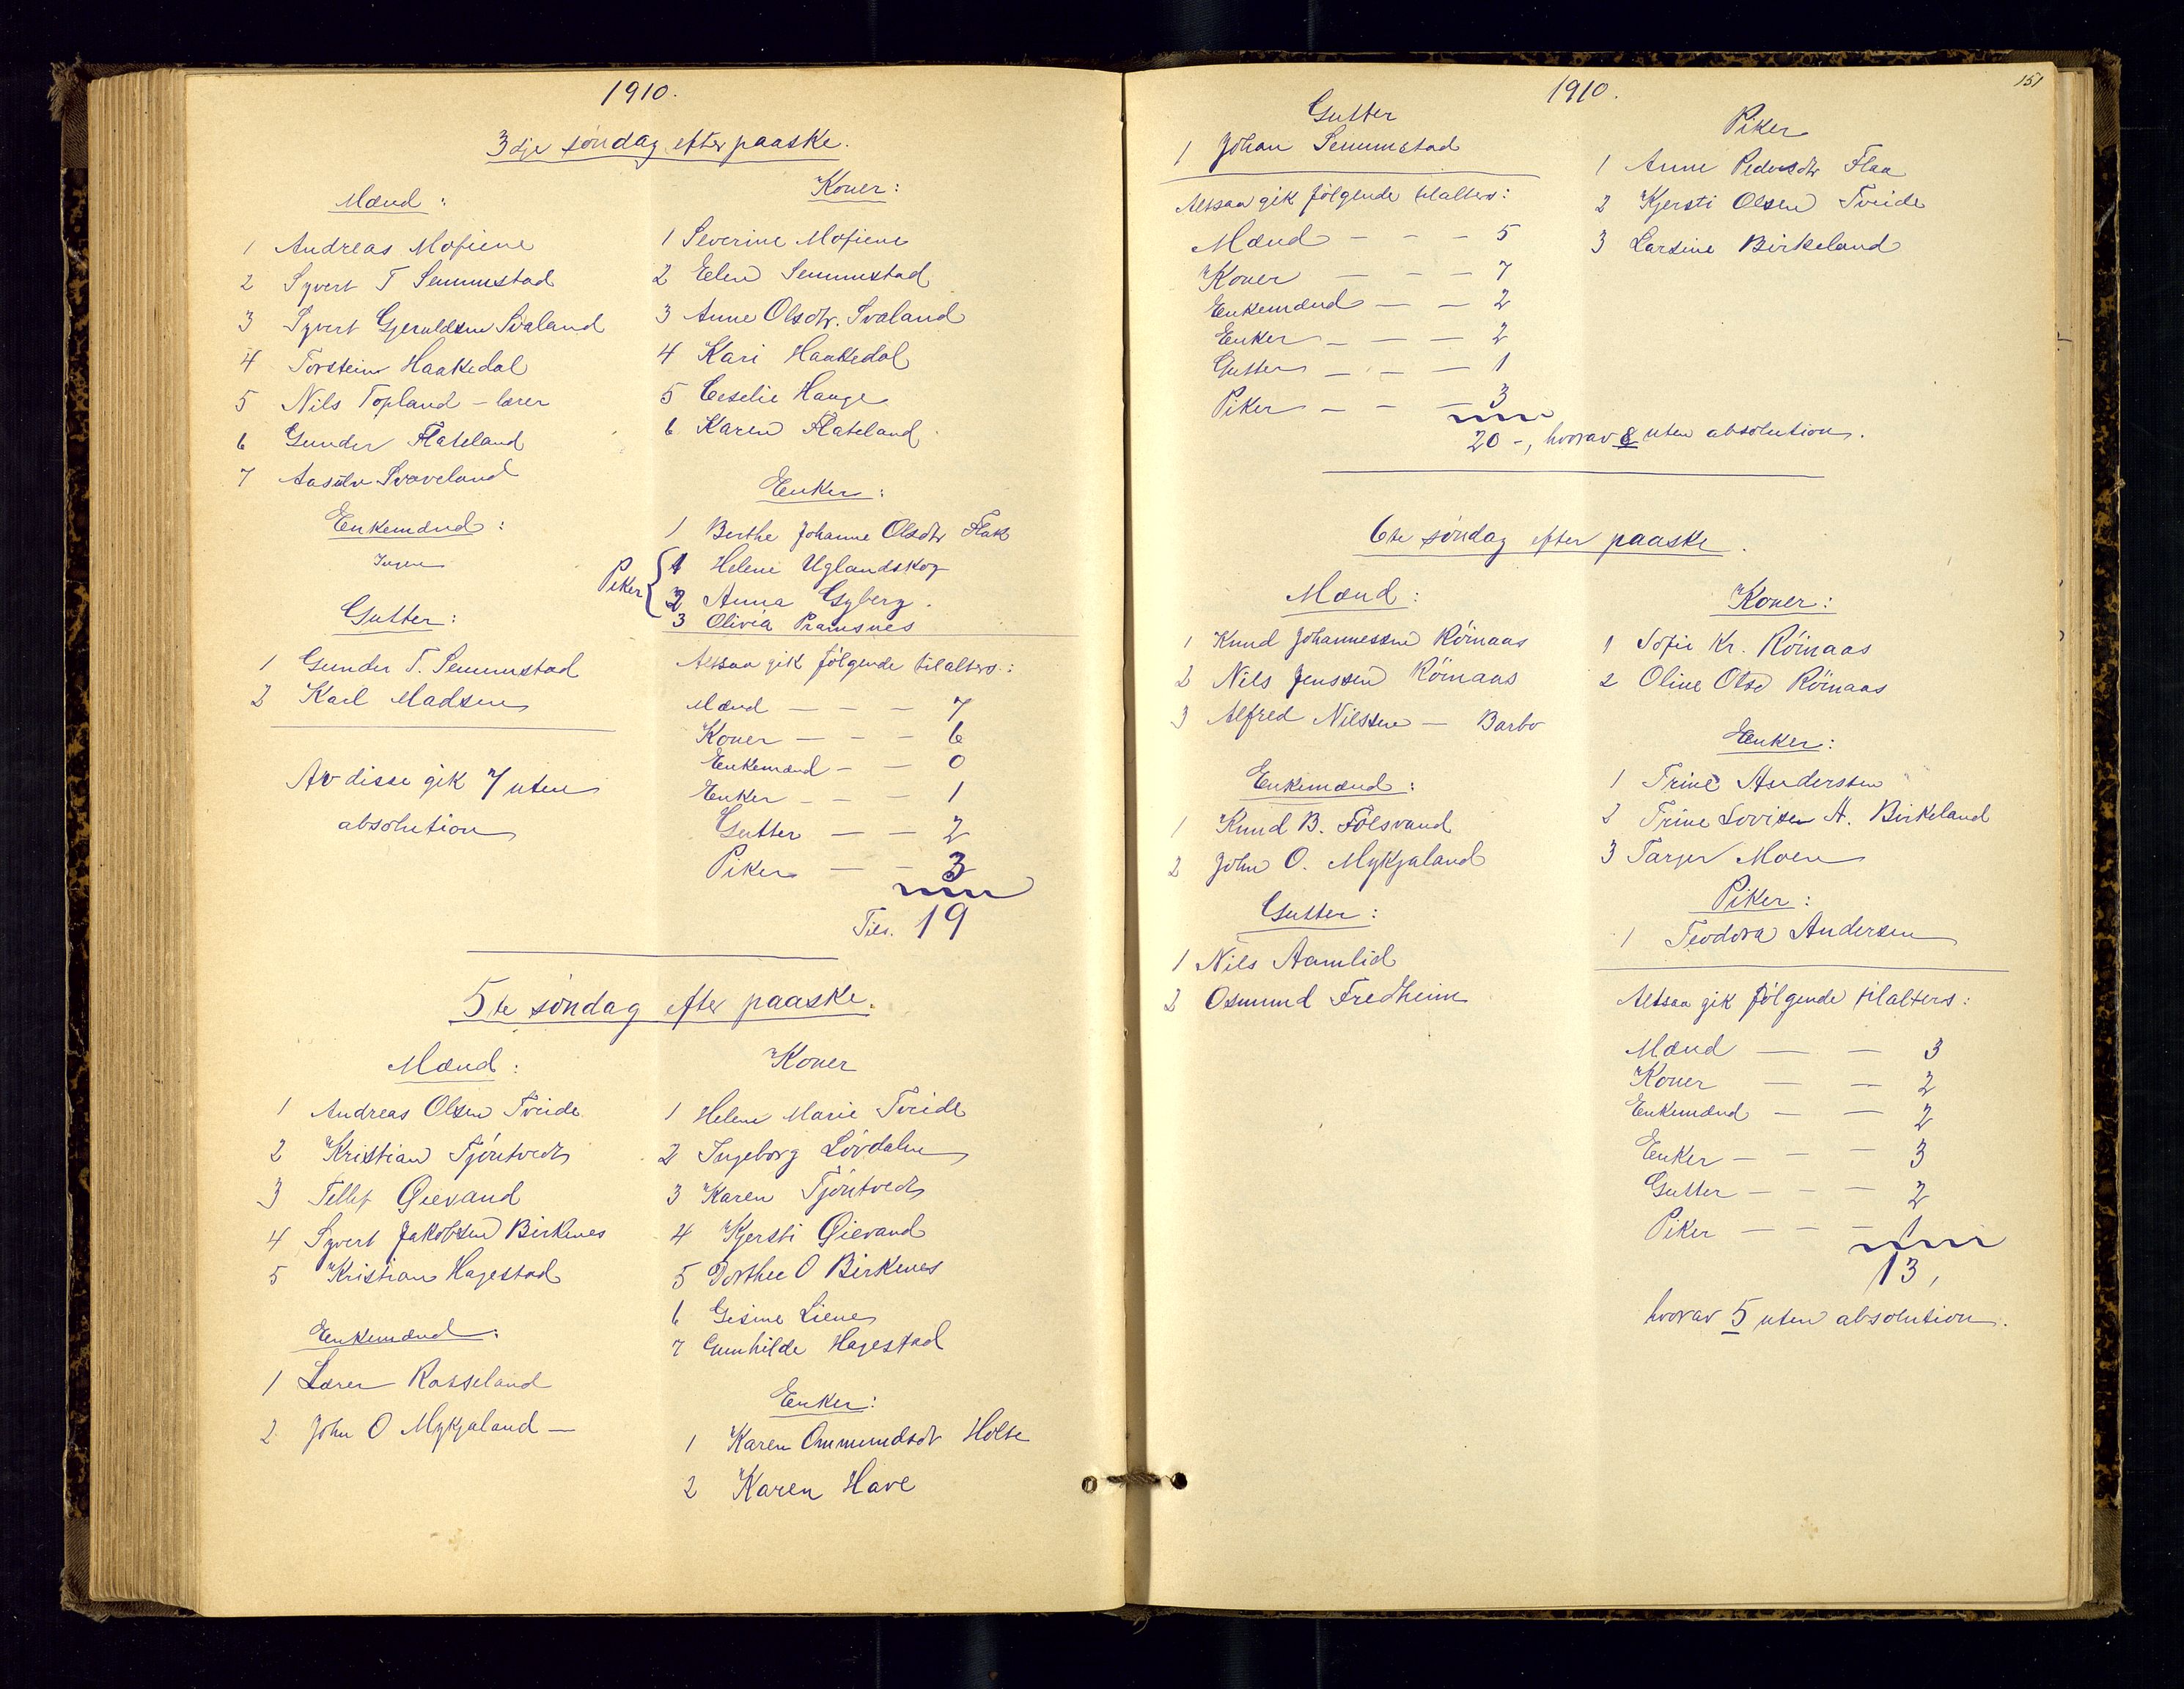 1910.
3dje søndag efter paaske.
Mænd:
1 Andreas Mosiene
2 Syvert T Senumstad
3 Syvert Gjeruldsen Svaland
4 Torstein Haakedal
5 Nils Topland - lærer
6 Gunder Flateland
7 Aasulv Svaveland
Enkemænd:
Ingen
Gutter:
1 Gunder T. Senumstad
2 Karl Madsen
Av disse gik 7 uten
absolution
Koner:
1 Severine Mosiene
2 Elen Senumstad
3 Anne Olsdtr. Svaland
4 Kari Haakedal
5 Ceselie Hauge
6 Karen Flateland
Enker:
1 Berthe Johanne Olsdtr Flak
Piker
1 Helene Uglandskog
2 Anna Gyberg.
3 Olivia Pramsnes
Altsaa gik følgende tilalters:
Mænd — — — 7
Koner — — — 6
Enkemænd — — 0
Enker — — — 1
Gutter — — 2
Piker — — 3
Tils. 19
5te søndag efter paaske.
Mænd:
1 Andreas Olsen Tveide
2 Kristian Tjøntvedt
3 Tellef Øievand
4 Syvert Jakobsen Birkenes
5 Kristian Hagestad
Enkemænd:
1 Lærer Rosseland
2 John O Mykjaland —
Koner
1 Helene Marie Tveide
2 Ingeborg Løvdalen
3 Karen Tjøntvedt
4 Kjersti Øievand
5 Dorthee O Birkenes
6 Gesine Lienes
7 Gunhilde Hagestad
Enker:
1 Karen Ommundsdtr Holte
2 Karen Have
151
1910.
Gutter
1 Johan Senumstad
Altsaa gik følgende tilalters:
Mænd — — — 5
Koner — — — 7
Enkemænd — — 2
Enker — — — 2
Gutter — — — 1
Piker — — — 3
20 -, hvorav 8 uten absolution.
Piker
1 Anne Pedersdtr Flaa
2 Kjersti Olsen Tveide
3 Larsine Birkeland
6te søndag efter paaske.
Mænd:
1 Knud Johannessen Röinaas
2 Nils Jenssen Röinaas
3 Alfred Nilssen — Barbo
Enkemænd:
1 Knud B. Fölsvand
2 John O. Mykjaland
Gutter:
1 Nils Aamlid
2 Osmund Fredheim
Koner:
1 Sofie Kr. Röinaas
2 Oline Olsd Röinaas
Enker:
1 Trine Anderssen
2 Trine Lovise A. Birkeland
3 Tarjer Moen
Piker:
1 Teodora Andersen
Altsaa gik følgende tilalters:
Mænd — — 3
Koner — — 2
Enkemænd — — 2
Enker — — — 3
Gutter — — — 2
Piker — — — 1
13,
hvorav 5 uten absolution.